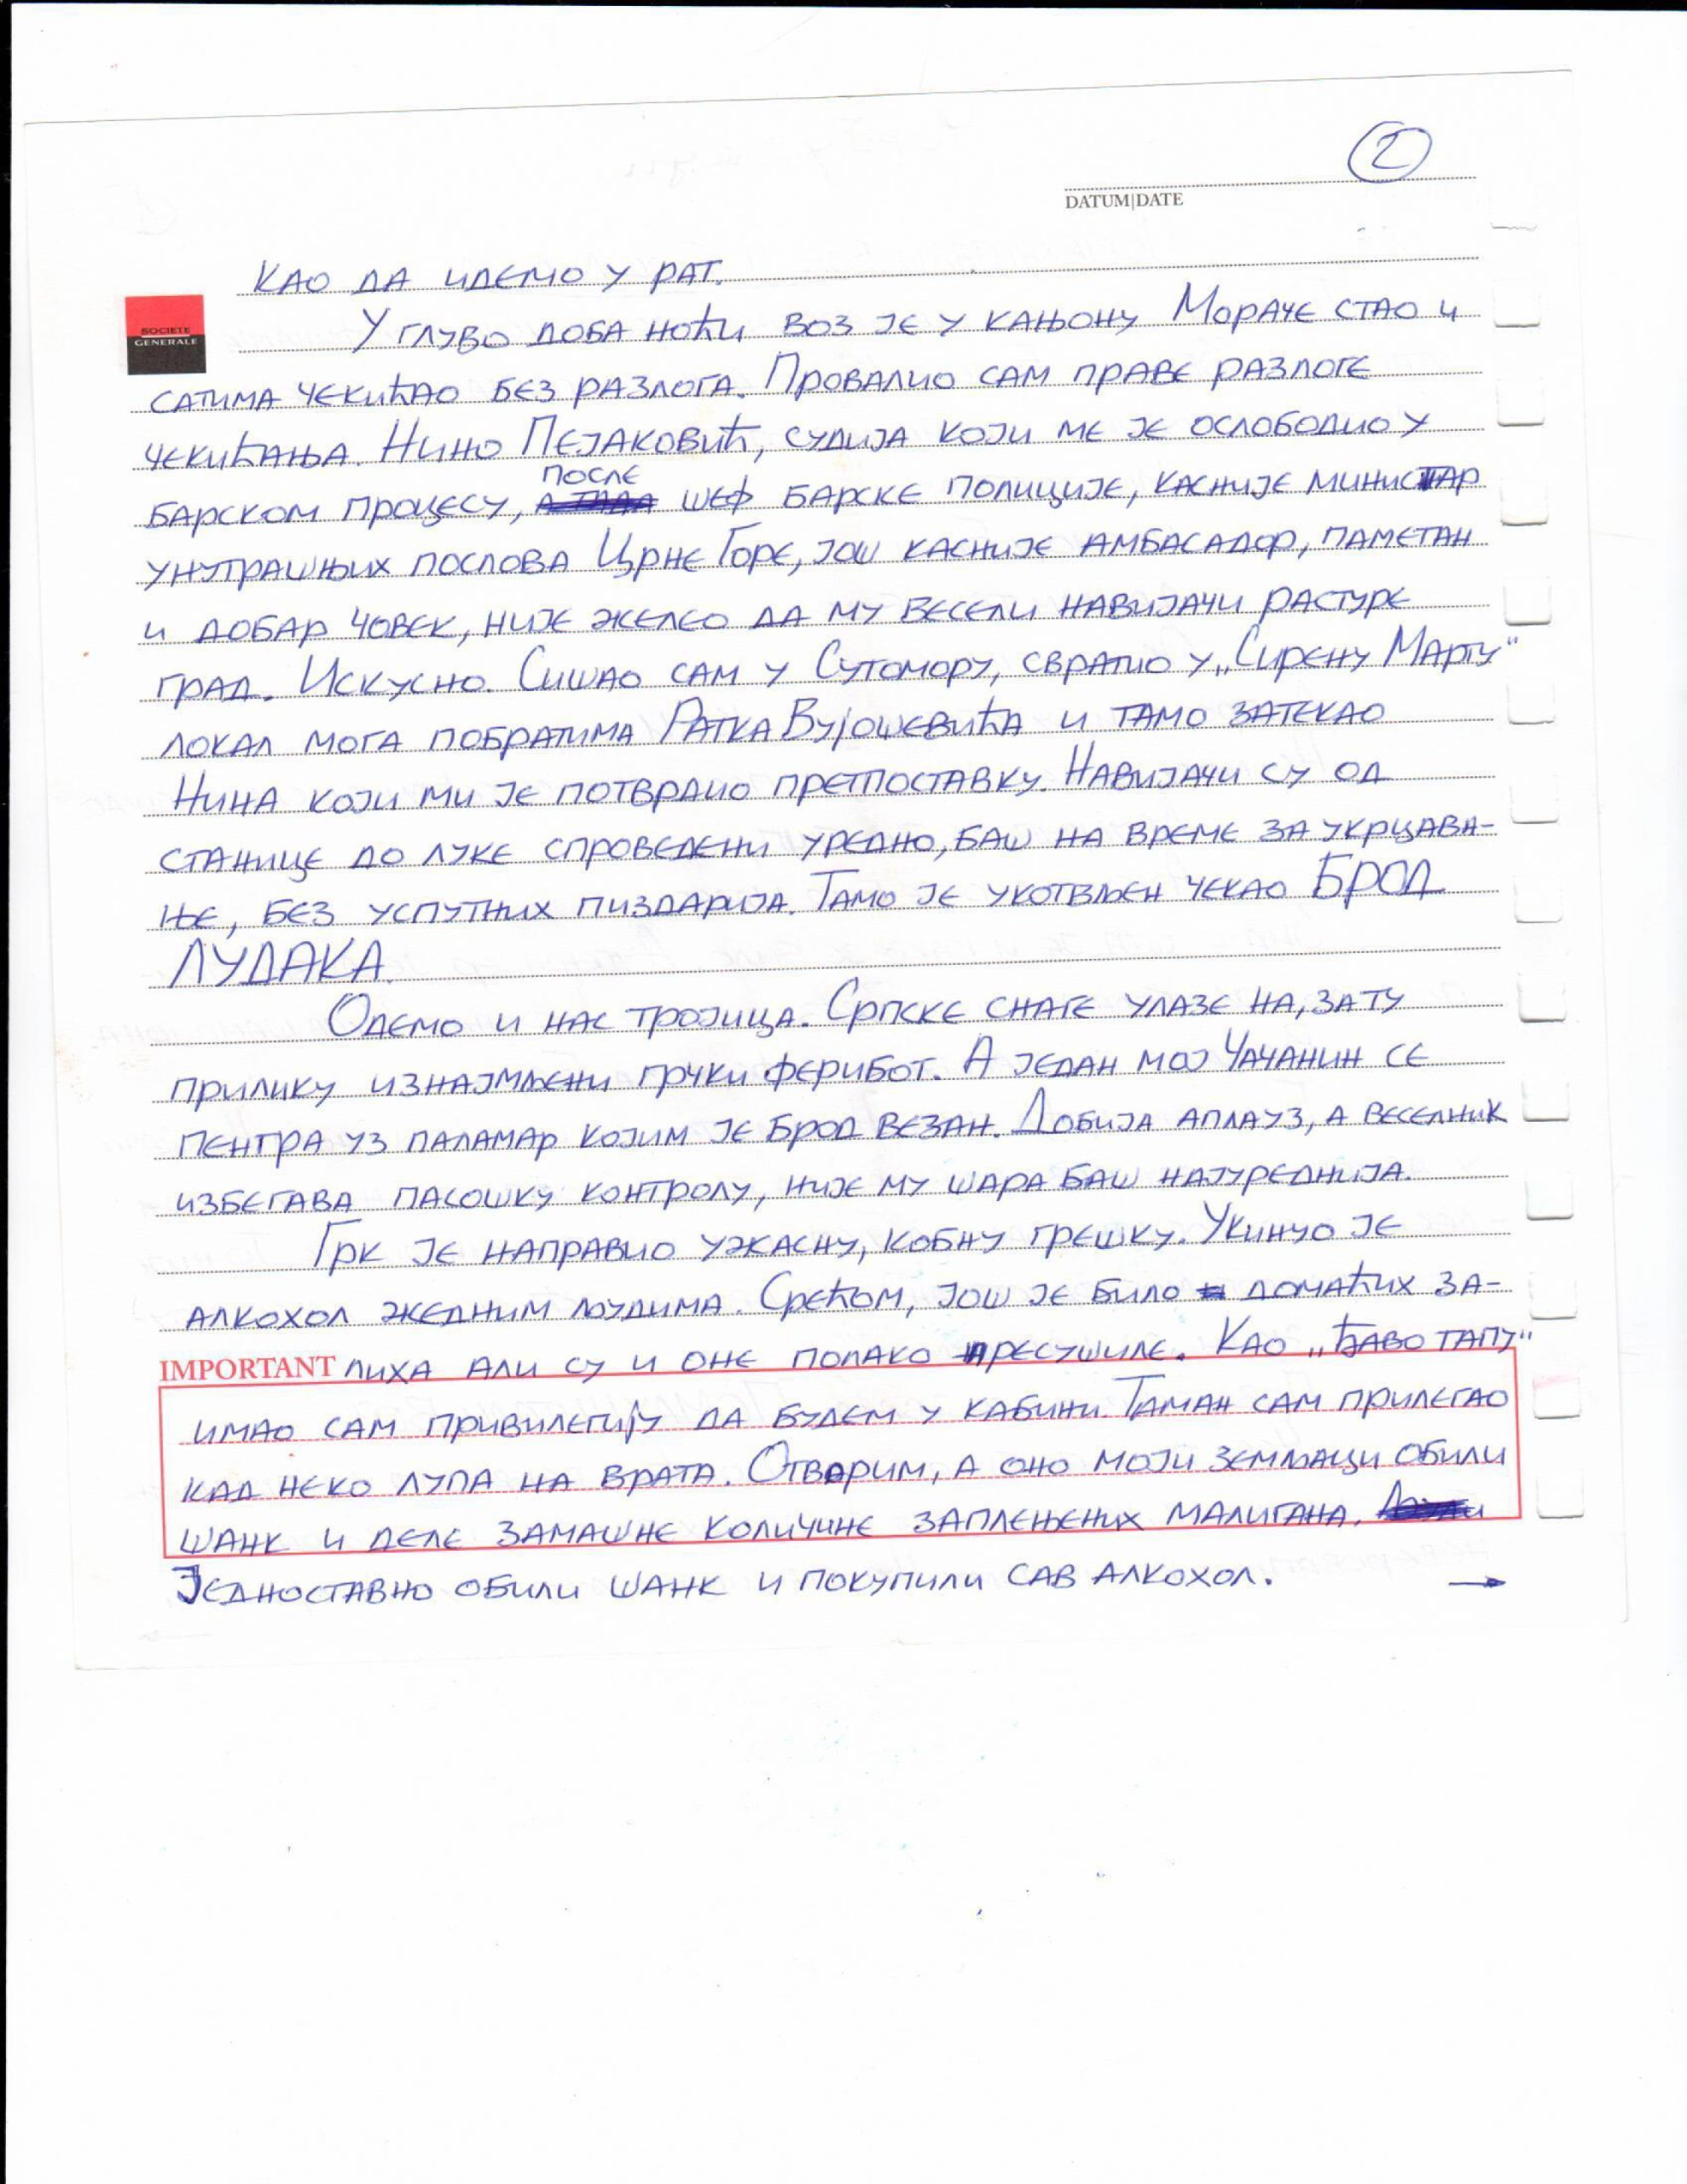 2
DATUM|DATE
КАО ДА ИДЕМО У РАТ.
SOCIETE
GENERALE
У ГЛУВО ДОБА НОЋИ ВОЗ ЈЕ У КАЊОНУ МОРАЧЕ СТАО И
САТИМА ЧЕКИЋАО БЕЗ РАЗЛОГА. ПРОВАЛИО САМ ПРАВЕ РАЗЛОГЕ
ЧЕКИЋАЊА. НИНО ПЕЈАКОВИЋ, СУДИЈА КОЈИ МЕ ЈЕ ОСЛОБОДИО У
ПОСЛЕ
БАРСКОМ ПРОЦЕСУ, ШЕФ БАРСКЕ ПОЛИЦИЈЕ, КАСНИЈЕ МИНИСТАР
УНУТРАШЊИХ ПОСЛОВА ЦРНЕ ГОРЕ, ЈОШ КАСНИЈЕ АМБАСАДОР, ПАМЕТАН
И ДОБАР ЧОВЕК, НИЈЕ ЖЕЛЕО ДА МУ ВЕСЕЛИ НАВИЈАЧИ РАСТУРЕ
ГРАД. ИСКУСНО. СИШАО САМ У СУТОМОРУ, СВРАТИО У „СИРЕНУ МАРТУ"
ЛОКАЛ МОГА ПОБРАТИМА РАТКА ВУЈОШЕВИЋА И ТАМО ЗАТЕКАО
НИНА КОЈИ МИ ЈЕ ПОТВРДИО ПРЕТПОСТАВКУ. НАВИЈАЧИ СУ ОД
СТАНИЦЕ ДО ЛУКЕ СПРОВЕДЕНИ УРЕДНО, БАШ НА ВРЕМЕ ЗА УКРЦАВА-
ЊЕ, БЕЗ УСПУТНИХ ПИЗДАРИЈА. ТАМО ЈЕ УКОТВЉЕН ЧЕКАО БРОД
ЛУДАКА.
ОДЕМО И НАС ТРОЈИЦА. СРПСКЕ СНАГЕ УЛАЗЕ НА, ЗА ТУ
ПРИЛИКУ ИЗНАЈМЉЕНИ ГРЧКИ ФЕРИБОТ. А ЈЕДАН МОЈ ЧАЧАНИН СЕ
ПЕНТРА УЗ ПАЛАМАР КОЈИМ ЈЕ БРОД ВЕЗАН. ДОБИЈА АПЛАУЗ, А ВЕСЕЛНИК
ИЗБЕГАВА ПАСОШКУ КОНТРОЛУ, НИЈЕ МУ ШАРА БАШ НАЈУРЕДНИЈА.
ГРК ЈЕ НАПРАВИО УЖАСНУ, КОБНУ ГРЕШКУ. УКИНУО ЈЕ
АЛКОХОЛ ЖЕДНИМ ЉУДИМА. СРЕЋОМ, ЈОШ ЈЕ БИЛО ДОМАЋИХ ЗА-
IMPORTANT ЛИХА АЛИ СУ И ОНЕ ПОЛАКО ПРЕСУШИЛЕ. КАО „ЂАВО ТАПУ"
ИМАО САМ ПРИВИЛЕГИЈУ ДА БУДЕМ У КАБИНИ. ТАМАН САМ ПРИЛЕГАО
КАД НЕКО ЛУПА НА ВРАТА. ОТВОРИМ, А ОНО МОЈИ ЗЕМЉАЦИ ОБИЛИ
ШАНК И ДЕЛЕ ЗАМАШНЕ КОЛИЧИНЕ ЗАПЛЕЊЕНИХ МАЛИГАНА.
ЈЕДНОСТАВНО ОБИЛИ ШАНК И ПОКУПИЛИ САВ АЛКОХОЛ. →